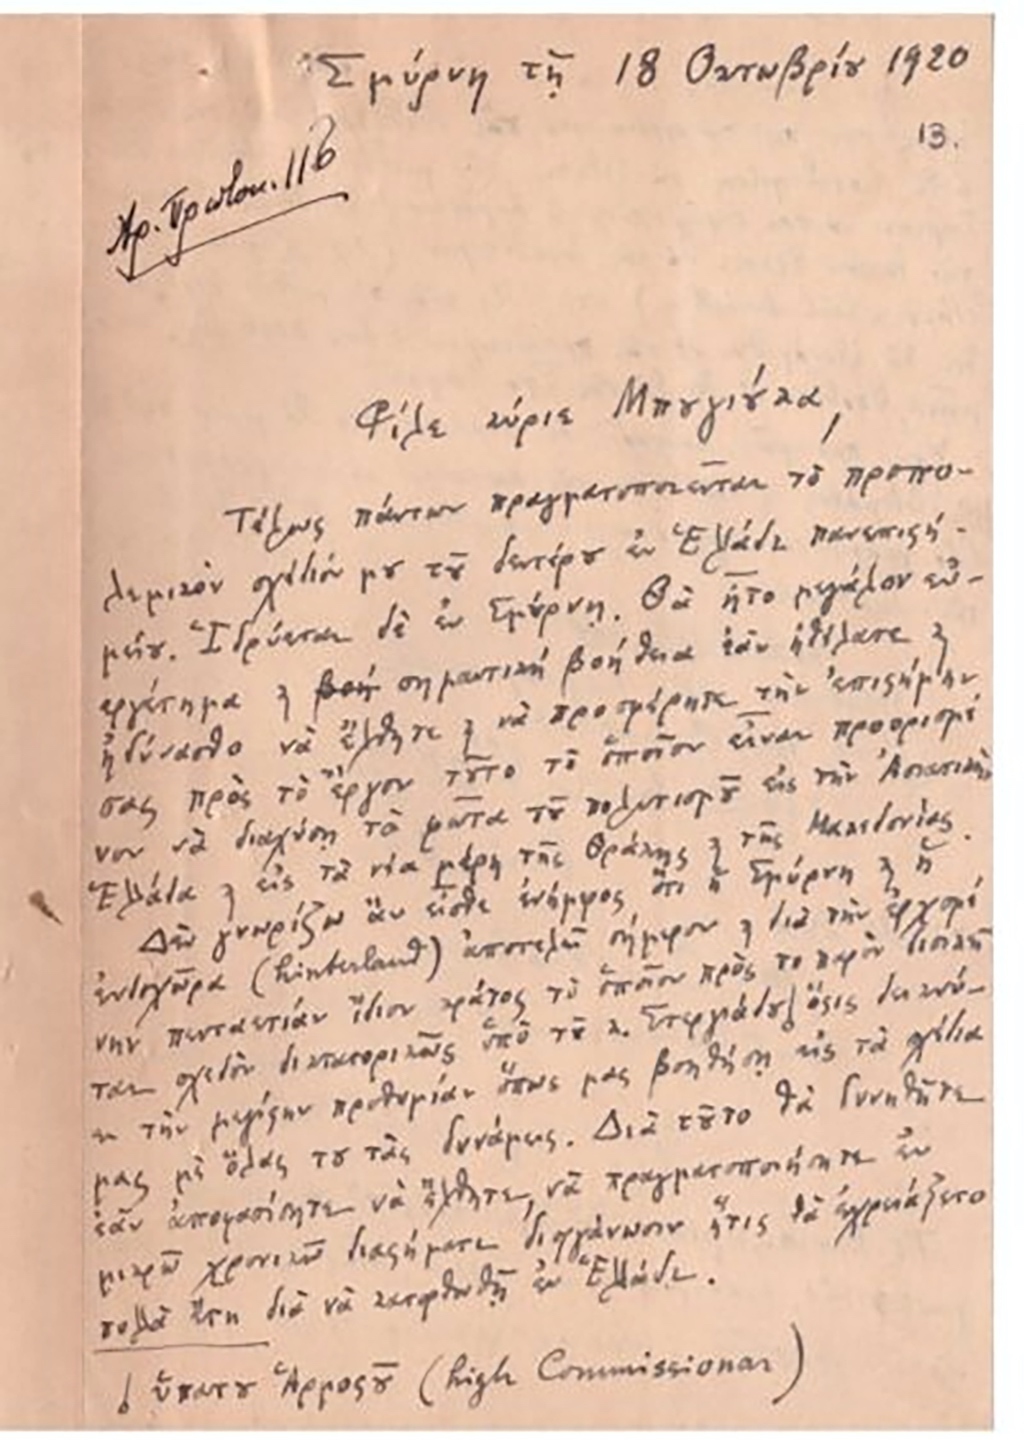 Σμύρνη τῇ 18 Οκτωβρίου 1920
13.
Αρ. Πρωτοκ. 116
Φίλε κύριε Μπουγιούκα,
Τέλως πάντων πραγματοποιεῖται τὸ προπο-
λεμικὸν σχέδιόν μου τοῦ δευτέρου ἐν Ἑλλάδι πανεπιστη-
μείου. Ἱδρύεται δὲ ἐν Σμύρνῃ. Θὰ ἦτο μεγάλον εὐ-
εργέτημα καὶ σημαντική βοήθεια ἐὰν ἠθέλατε καὶ
ἠδύνασθο νὰ ἔλθητε καὶ νὰ προσφέρητε τὴν ἐπιστήμην
σας πρὸς τὸ ἔργον τοῦτο τὸ ὁποῖον εἶναι προορισμέ
νον νὰ διαχύσῃ τὰ φῶτα τοῦ πολιτισμοῦ εἰς τὴν Ἀσιατικὴν
Ἑλλάδα καὶ εἰς τὰ νέα μέρη τῆς Θράκης καὶ τῆς Μακεδονίας.
Δὲν γνωρίζω ἂν εἶσθε ἐνήμερος ὅτι ἡ Σμύρνη καὶ ἡ
ἐνδοχώρα (hinterland) ἀποτελεῖ σήμερον καὶ διὰ τὴν ἐρχομέ
νην πενταετίαν ἴδιον κράτος τὸ ὁποῖον πρὸς το παρὸν διοικεῖ
ται σχεδὸν δικτατορικῶς ὑπὸ τοῦ κ. Στεργιάδου ὅστις δεικνύ-
ει τὴν μεγίστην προθυμίαν ὅπως μας βοηθήσῃ εἰς τὰ σχέδια
μας μὲ ὅλας του τὰς δυνάμεις. Διὰ τοῦτο θὰ δυνηθῆτε
ἐὰν ἀποφασίσητε νὰ ἔλθητε, νὰ πραγματοποιήσητε ἐν
μικρῷ χρονικῷ διαστήματι διοργάνωσιν ἥτις θὰ ἐχρειάζετο
πολλὰ ἔτη διὰ νὰ κατορθωθῇ ἐν Ἑλλάδι.
ὑπάτου Ἁρμοστοῦ (high Commissionar)